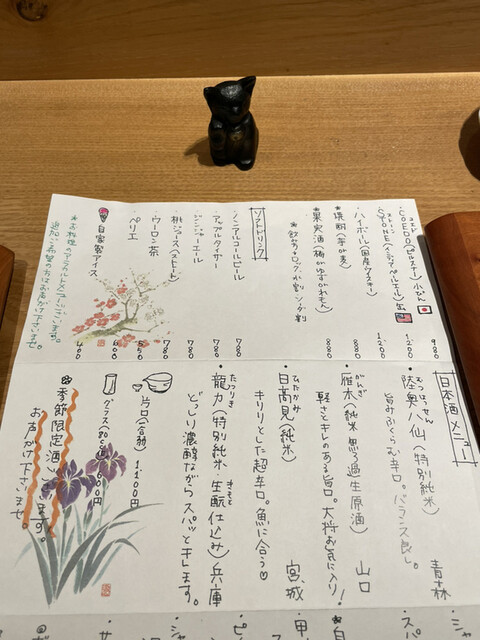 ・COEDO(ピルスナー) 小びん 980
・STONE(インディアペールエール) 缶 1200
・ハイボール(国産ウイスキー) 1200
・焼酎(芋か麦) 880
・果実酒(梅かゆずかれもん) 880
＊飲み方→ロック,水割,ソーダ割
ソフトドリンク
・ノンアルコールビール 780
・アップルタイザー 780
・ジンジャーエール 780
・桃ジュース(スヒード) 780
・ウーロン茶 550
・ペリエ 600
自家製アイス 480
＊お料理(アラカルト)メニューございます。
追加ご希望の方はお声がけ下さいませ。
日本酒メニュー
むつはっせん
・陸奥八仙(特別純米) 青森
旨みふくらむ辛口。バランス良し。
がんぎ
・雁木(純米 無ろ過生原酒) 山口
軽さとキレのある旨口。大将お気に入り!
ひたかみ
・日高見(純米) 宮城
キリリとした超辛口。魚に合う♡
たつりき きもと
・龍力(特別純米・生酛仕込み) 兵庫
どっしり濃醇ながらスパッとキレます。
片口(一合)
1100円
グラス(80cc)
季節限定酒
お声がけ下さいませ。